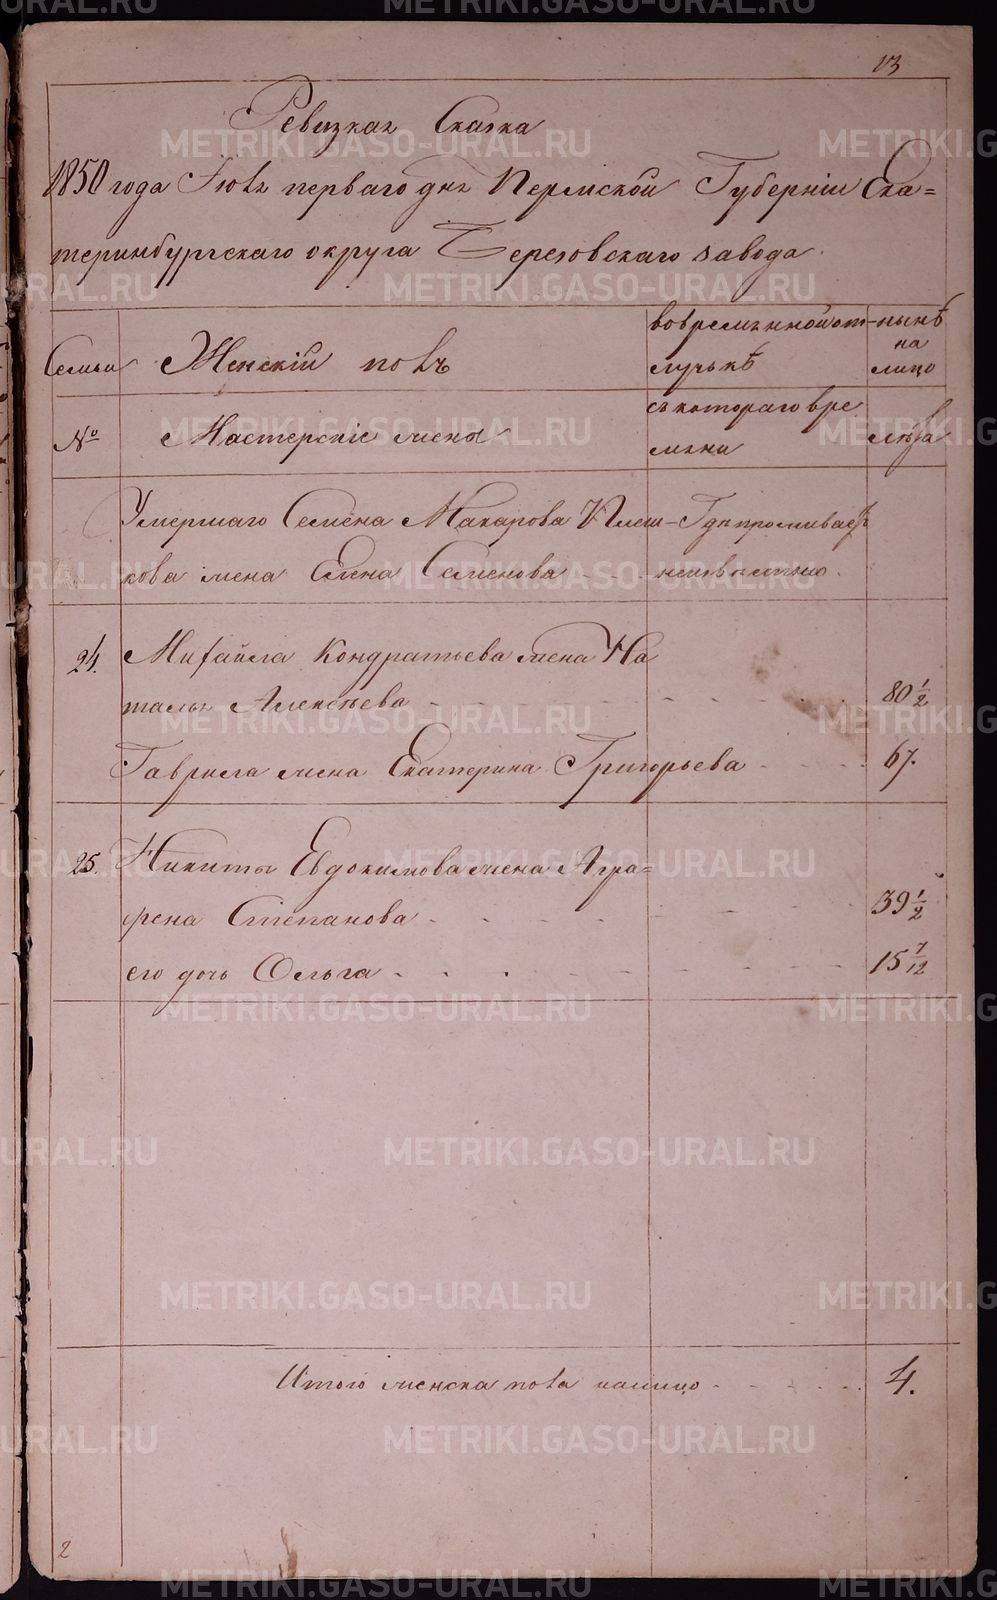 13
Ревизкая Сказка
1850 года Июля перваго дня Пермской Губерніи Ека=
теринбургскаго округа Березовскаго завода
Семьи Женскій полъ во временной от- ныне
на
лучькѣ лицо
№ Мастерскіе жены съ котораго вре Лѣта
мѣни
Умершаго Семена Макарова Плеш- Где проживаетъ
кова жена Елена Семенова неизвѣстно.
24. Михайла Кондратьева жена На
талья Алексѣева 80 1/2
Гаврила жена Екатерина Григорьева 67.
25. Никиты Евдокимова жена Агра=
фена Степанова 39 1/2
его дочь Ольга 15 7/12
Итого женска пола налицо 4.
2
METRIKI.GASO-URAL.RU